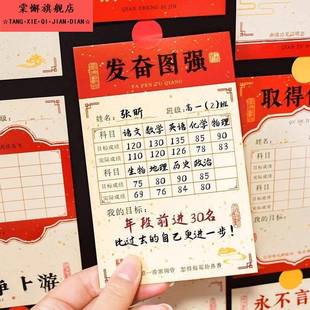 棠懈旗舰店
☆TANG-XIE-QI-JIAN-DIAN☆
发奋图强
FA FEN TU QIANG
姓名: 张昕 班级: 高一(2)班
科目 语文 数学 英语 化学 物理
目标成绩 120 130 135 85 90
实际成绩 110 120 126 78 83
科目 生物 地理 历史 政治
目标成绩 75 80 90 85
实际成绩 69 76 84 80
我的目标:
年段前进30名
比过去的自己更进一步!
取得
争上游
永不言